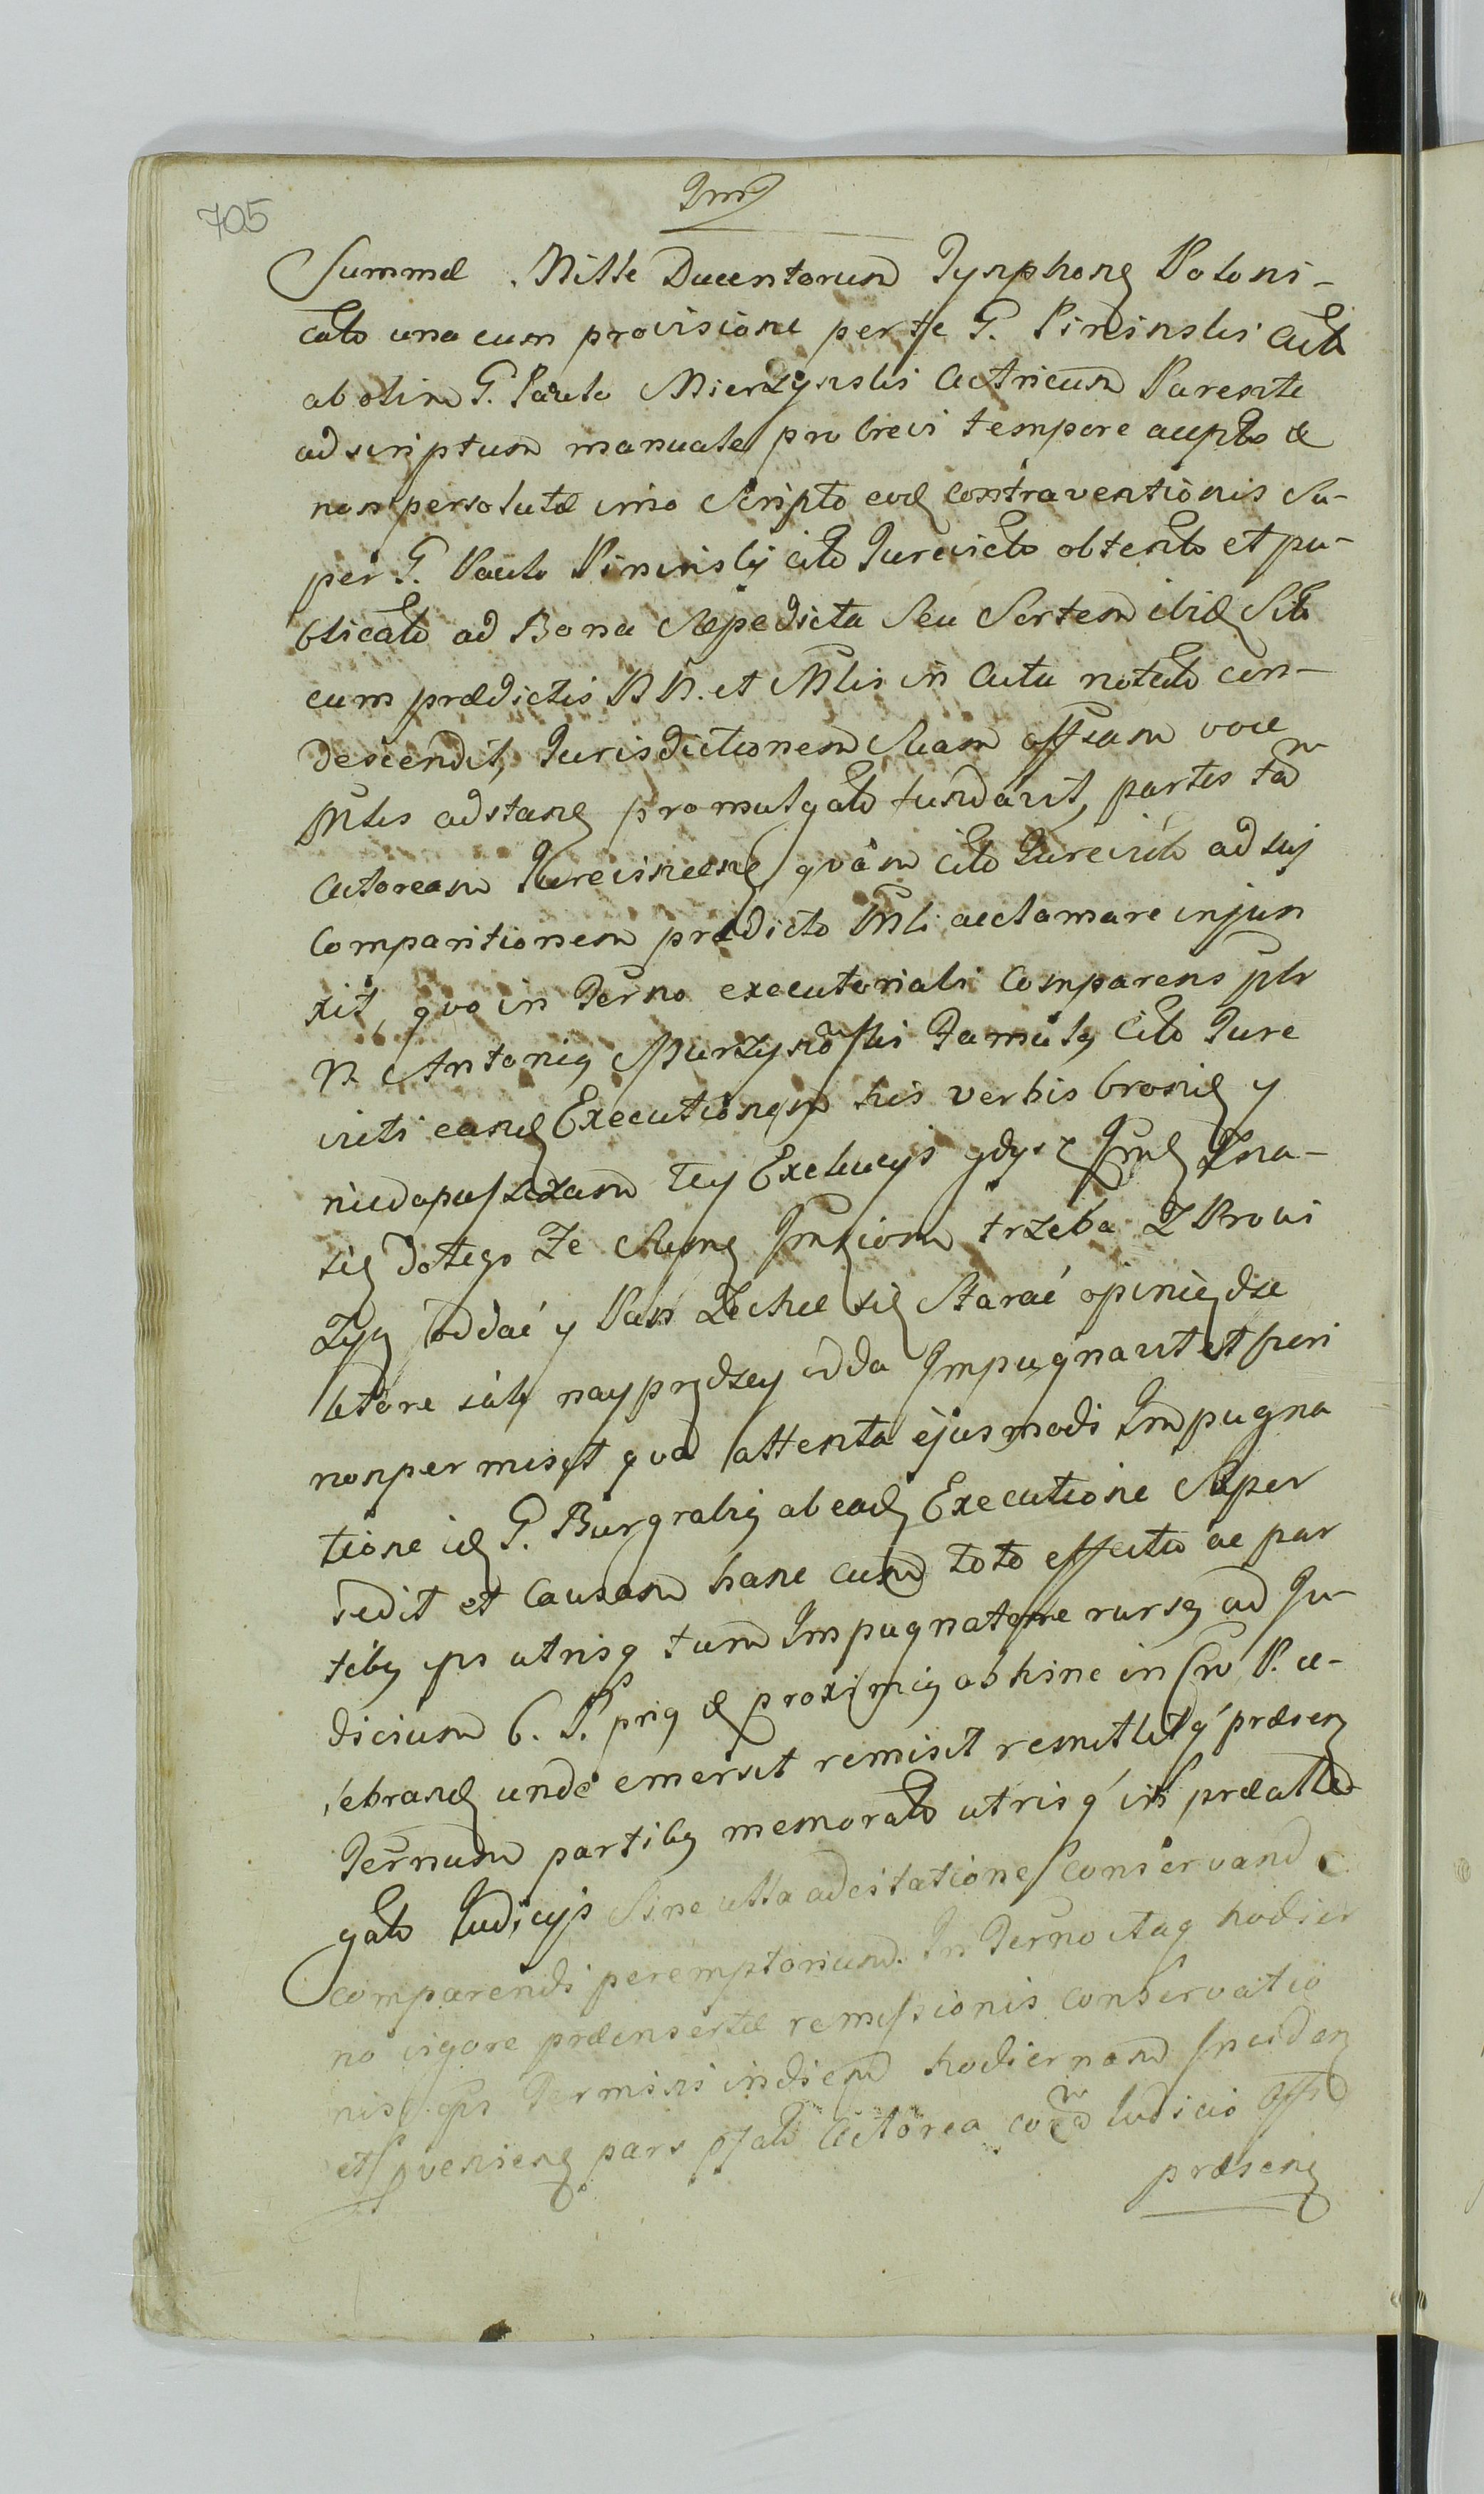 705
Summæ Mille Ducentorum Tynphonę Poloni-
calo una cum provisione per te G. Pininski
ab olim G. Paulo Mierzynski Actricum Parente
ad scriptum manuale pro brevi tempore acepto &
non persolutæ imo Scripto eodę contraventionis Su-
per G. Paulo Pininskij cito Jurevicto obtento et pu-
blicato ad Bona Sæpedicta Seu Sortem ibidę
cum prædictis NN. et Mlis in Actu notato con-
descendit, Jurisdictionem Suam offsam voce
Mlis adstanę promulgato fundavit, partes
Actoream quàm cito Jurevictā ad sui
Comparitionem prædicto Mli acclamare injun
xit, quo in Termo executoriali Comparens
N. Antonig Famulg Cito Jure
victi eandę Executionem his verbis bronię y
niedopuszczam tey Exekucyi gdysz Zna-
się do tego Ze trzeba
oddać y Pan Zechce się Starać opiniędze
ktore iak nayprędzey odda Impugnavit et fieri
non permisit qva attenta ejusmodi Impugna
tione idę G. Burgrabig ab eadę Executione Super
sedit et Causam hanc cum toto effectu ac par
tibg ips utrisq tum Impugnatore rursg ad Ju-
dicium prig & proximig abhinc in P. ce-
lebrandę unde emersit remisit remittitq' præsenę
Termum partibg memorato utrisq' in prædtle-
gato Judicijs Sine ulla adcitatione Conservand
comparendi peremptorium. In Termo itaq hodier
no vigore præinsertæ remissionis conservatio
nisq ips Termini in diem hodiernam Incidenę
et pvenienę pars Actorea Judicio
præsenę